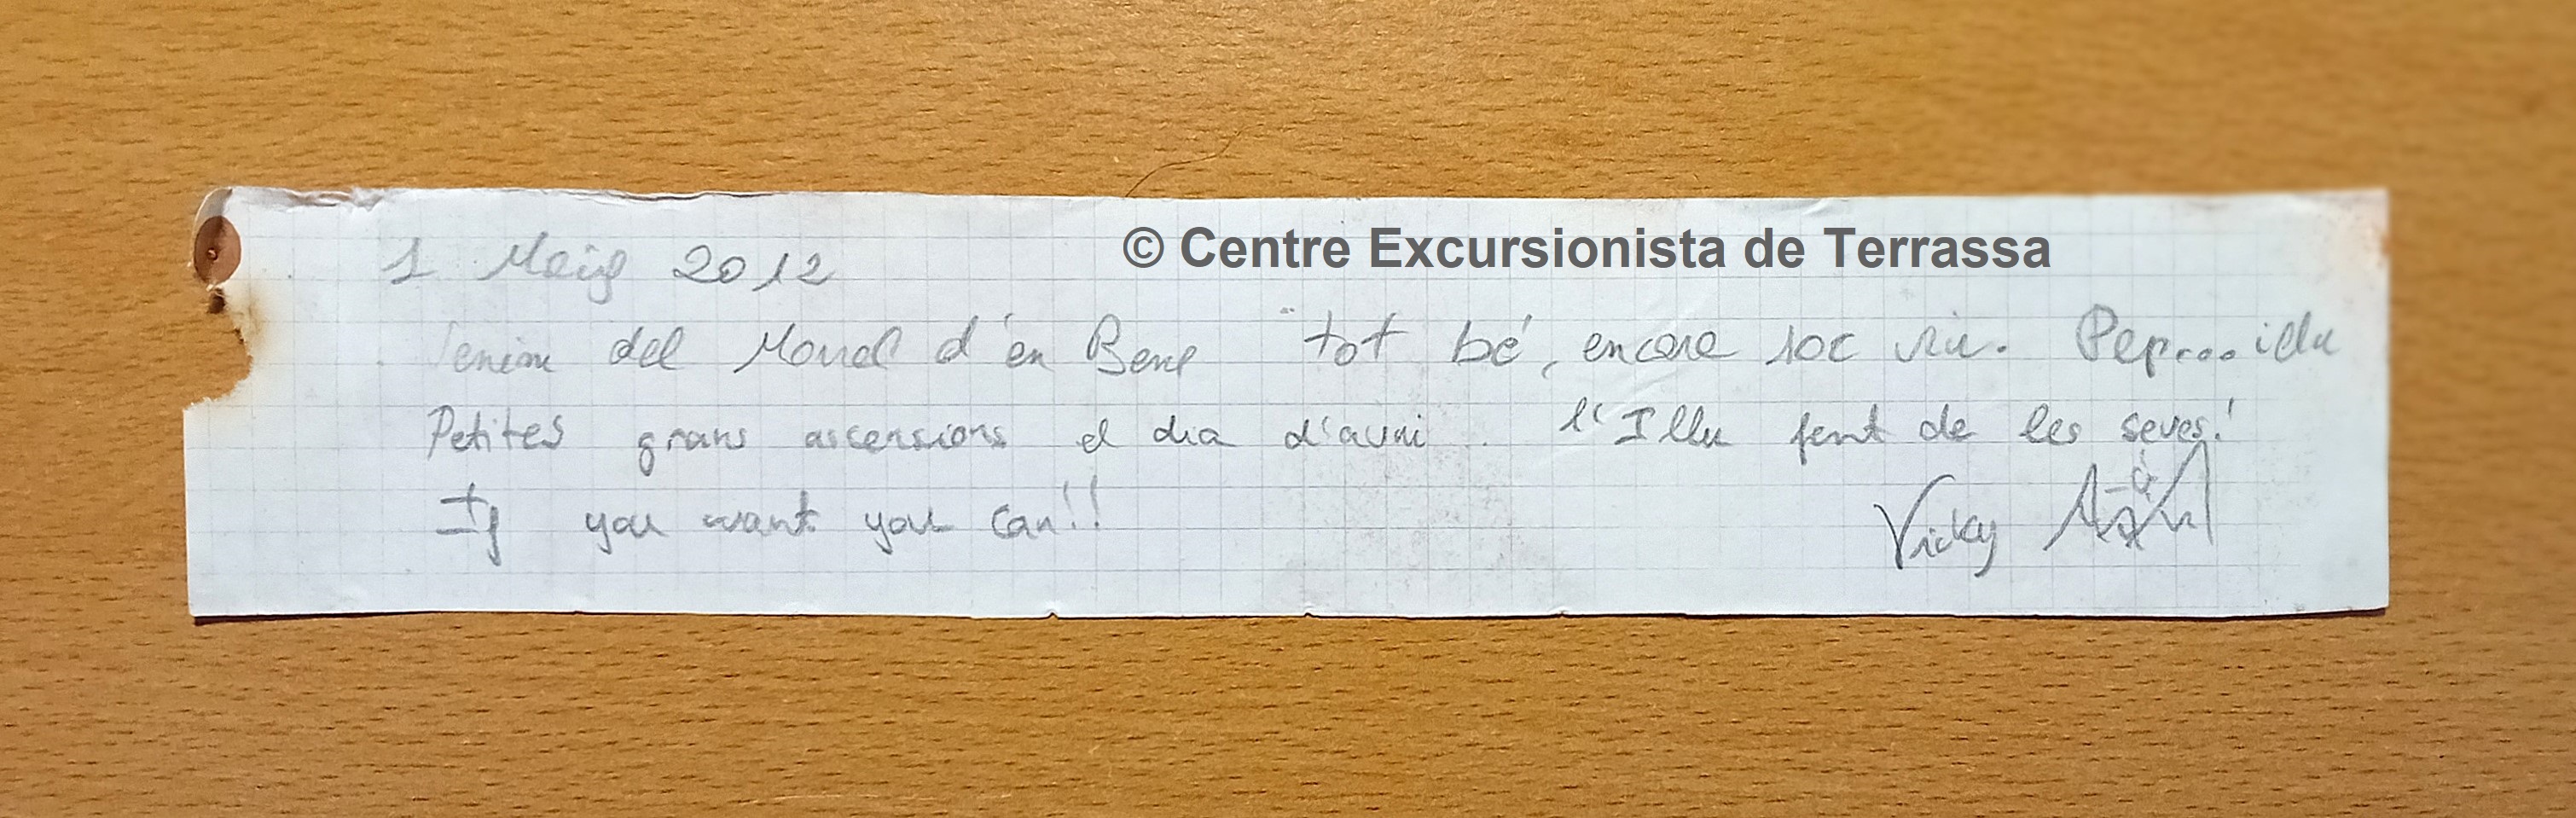 © Centre Excursionista de Terrassa
1 Maig 2012
Venim del Morral d'en Benet tot bé, encara soc viu. Pep...illu
Petites grans ascensions el dia d'avui. l'Illu fent de les seves!
If you want you can!!
Vicky